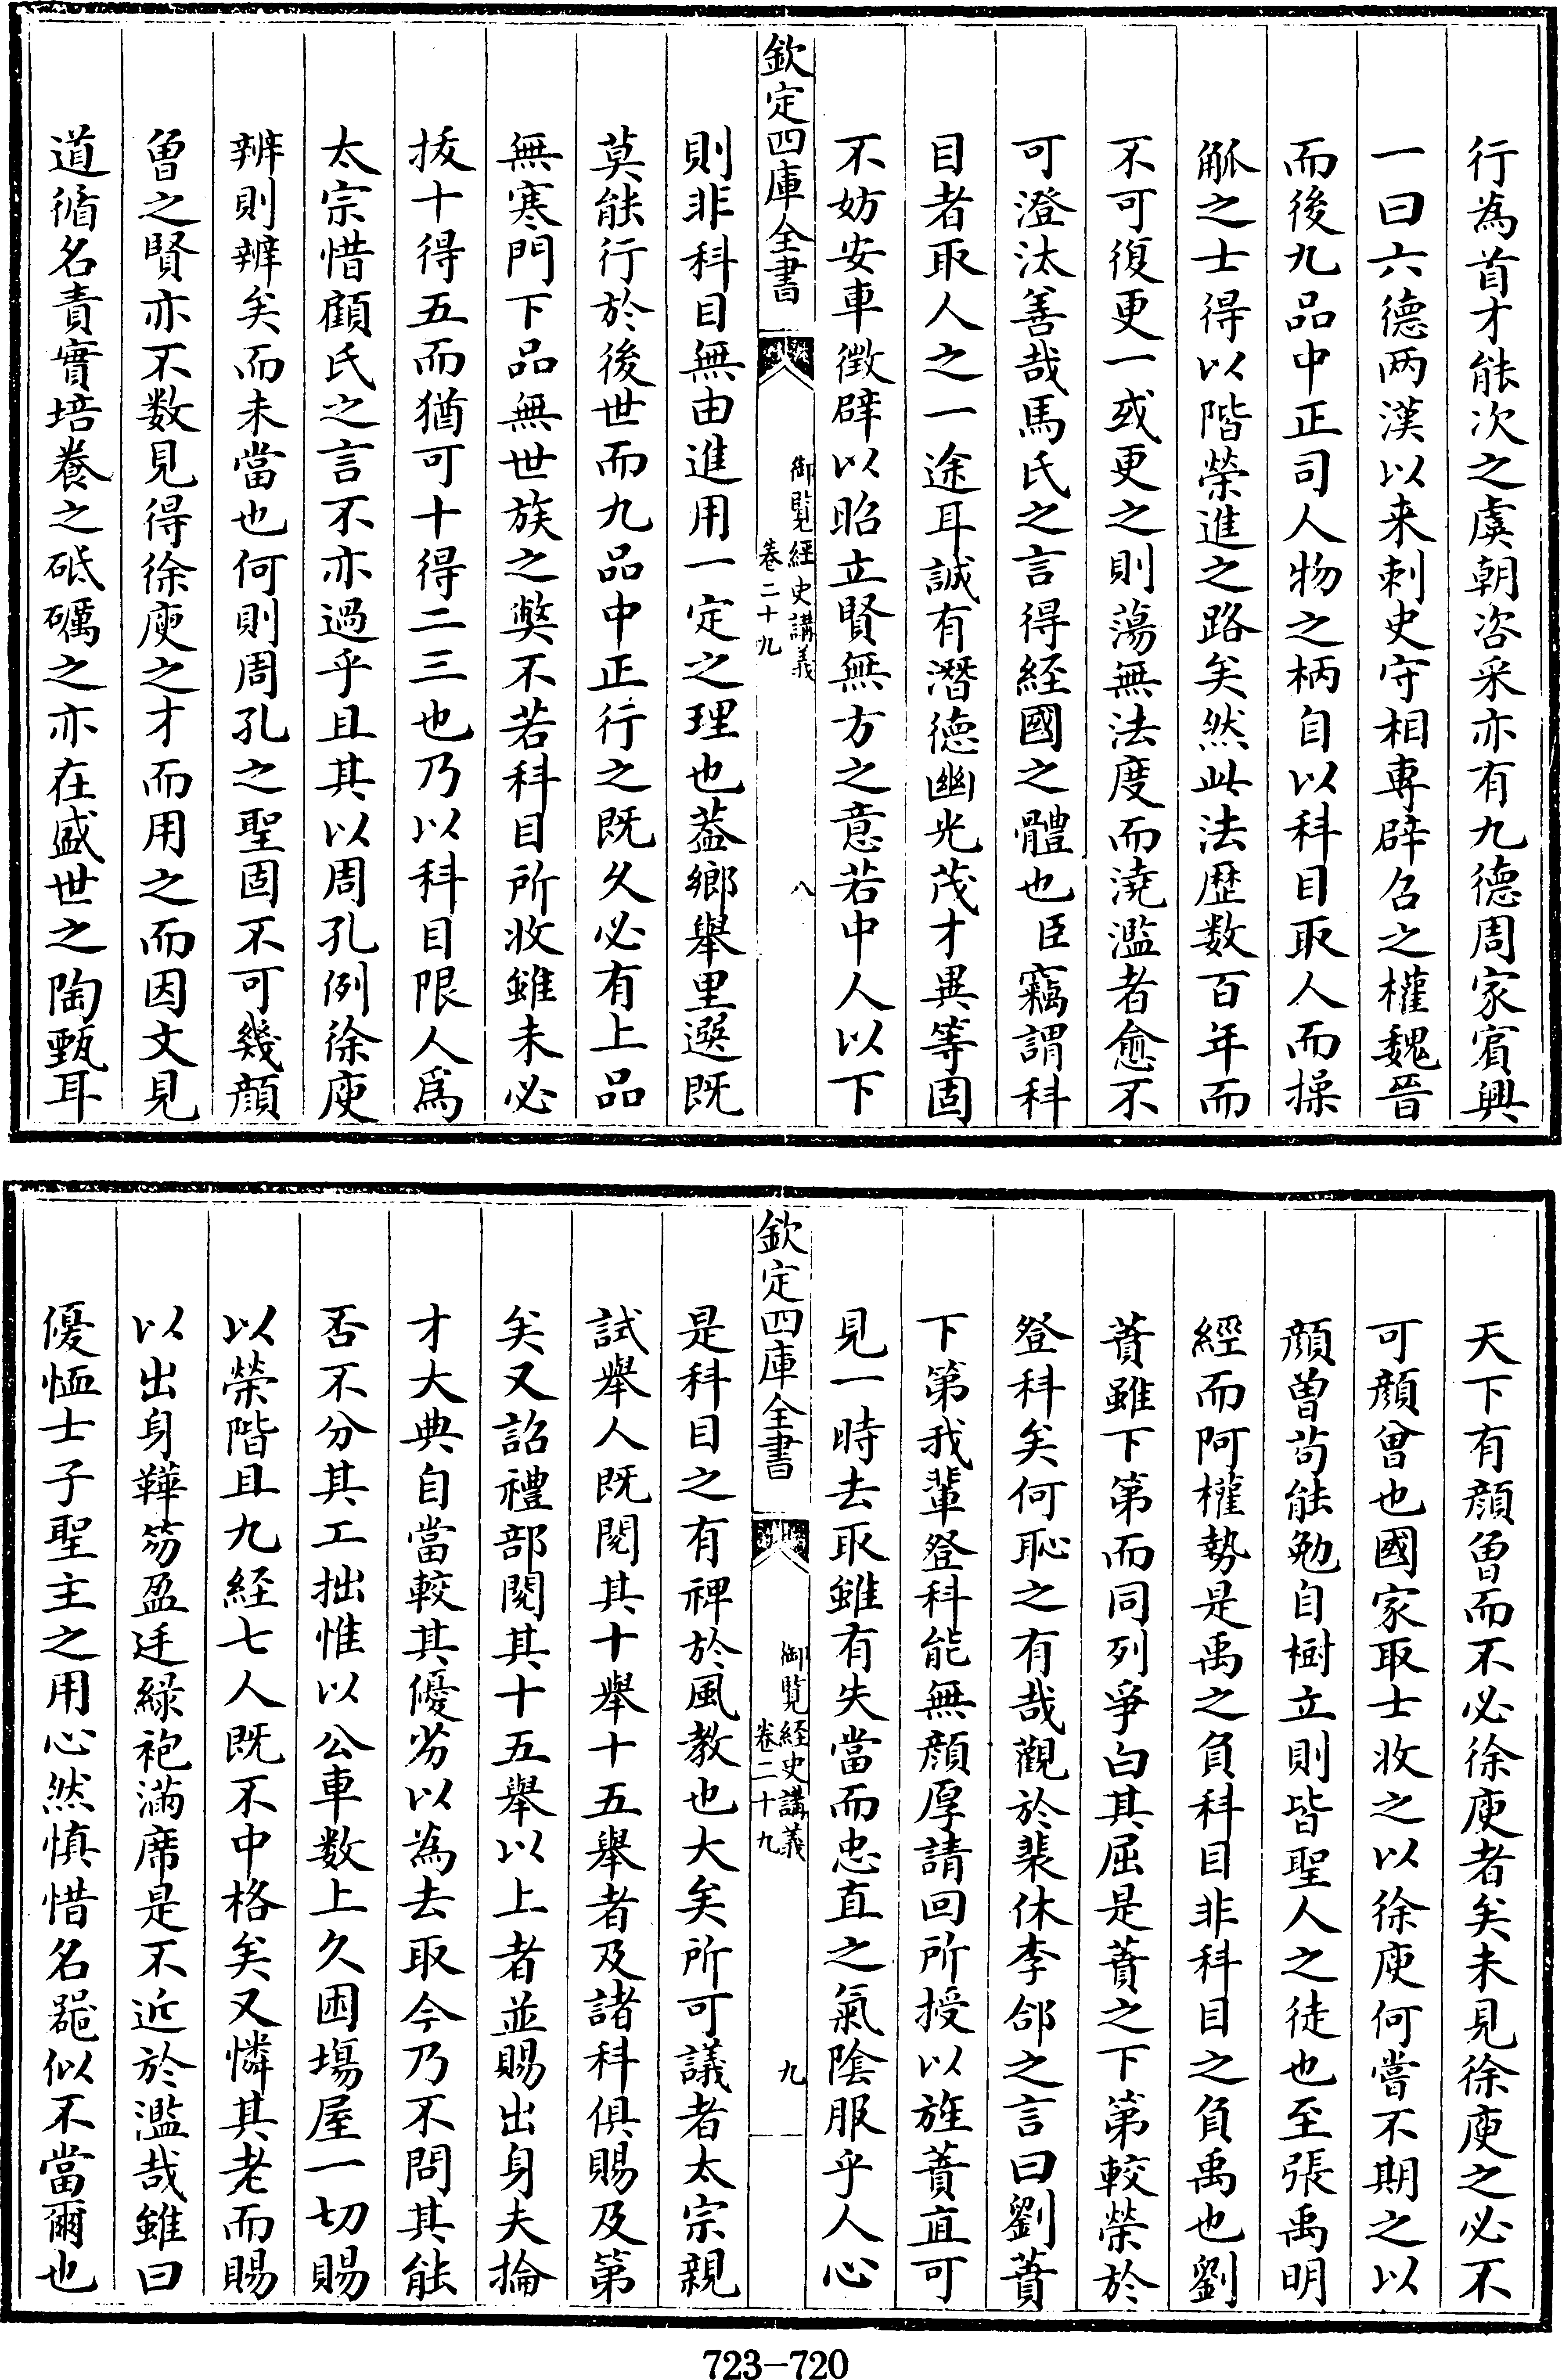 行為首才能次之虞朝咨采亦有九德周家賓興
一曰六德两漢以来刺史守相專辟召之權魏晉
而後九品中正司人物之柄自以科目取人而操
觚之士得以階榮進之路矣然此法歴数百年而
不可復更一或更之則蕩無法度而澆濫者愈不
可澄汰善哉馬氏之言得經國之體也臣竊謂科
目者取人之一途耳誠有潛德幽光茂才異等固
不妨安車徵辟以昭立賢無方之意若中人以下
欽定四庫全書
御覧經史講義
卷二十九
八
則非科目無由進用一定之理也葢鄉舉里選既
莫能行於後世而九品中正行之既久必有上品
無寒門下品無世族之獘不若科目所收雖未必
拔十得五而猶可十得二三也乃以科目限人爲
太宗惜顧氏之言不亦過乎且其以周孔例徐庾
辨則辨矣而未當也何則周孔之聖固不可幾顔
曾之賢亦不数見得徐庾之才而用之而因文見
道循名責實培養之砥礪之亦在盛世之陶甄耳
天下有顔曾而不必徐庾者矣未見徐庾之必不
可顔曾也國家取士收之以徐庾何嘗不期之以
顔曾苟能勉自樹立則皆聖人之徒也至張禹明
經而阿權勢是禹之負科目非科目之負禹也劉
蕡雖下第而同列爭白其屈是蕡之下第較榮於
登科矣何恥之有哉觀於裴休李郃之言曰劉蕡
下第我輩登科能無顔厚請回所授以旌蕡直可
見一時去取雖有失當而忠直之氣隂服乎人心
欽定四庫全書
御覧經史講義
卷二十九
九
是科目之有裨於風教也大矣所可議者太宗親
試舉人既閲其十舉十五舉者及諸科俱賜及第
矣又詔禮部閲其十五舉以上者並賜出身夫掄
才大典自當較其優劣以為去取今乃不問其能
否不分其工拙惟以公車数上久困塲屋一切賜
以榮階且九経七人既不中格矣又憐其老而賜
以出身鞾笏盈廷緑袍滿席是不近於濫哉雖曰
優恤士子聖主之用心然慎惜名器似不當爾也
723-720